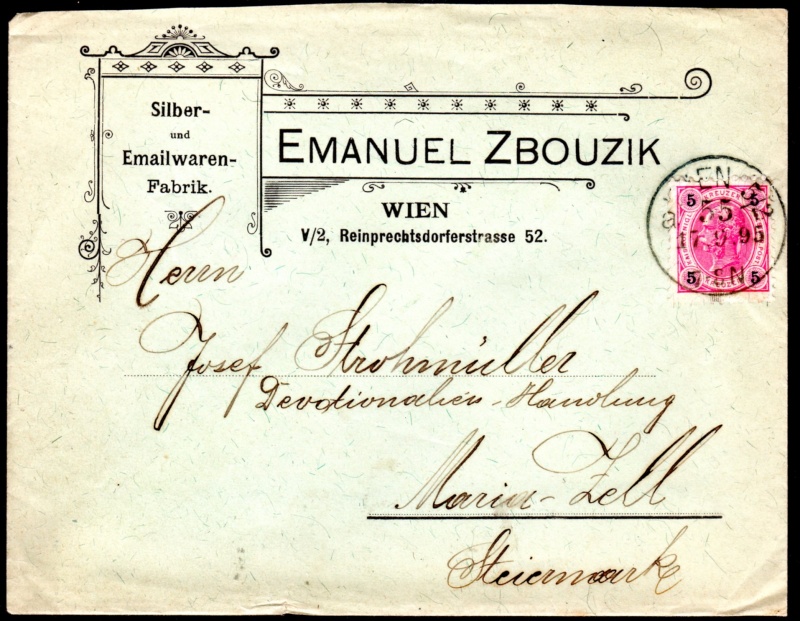 Silber-
und
Emailwaren-
Fabrik.
EMANUEL ZBOUZIK
WIEN
V/2, Reinprechtsdorferstrasse 52.
WIEN 5/2
55
17.9.95
WIEN
5 KREUZER 5
5 5
Herrn
Josef Strohmüller
Devotionalien-Handlung
Maria-Zell
Steiermark